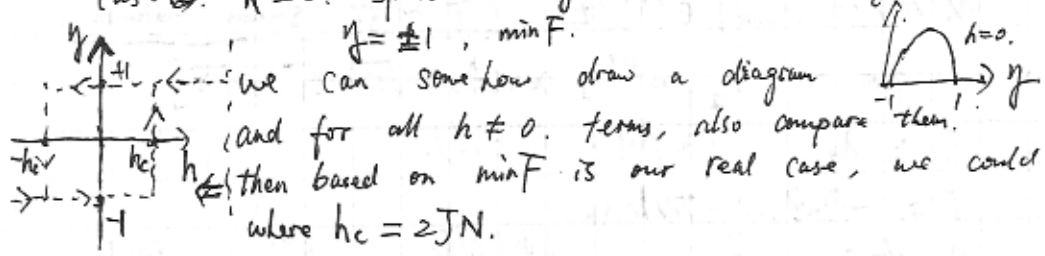 y = ±1 , min F.
we can somehow draw a diagram
and for all h ≠ 0. terms, also compare them.
then based on min F is our real case, we could
where hc = 2JN.
y
+1
-hc
hc
h
-1
h=0.
-1
1
y